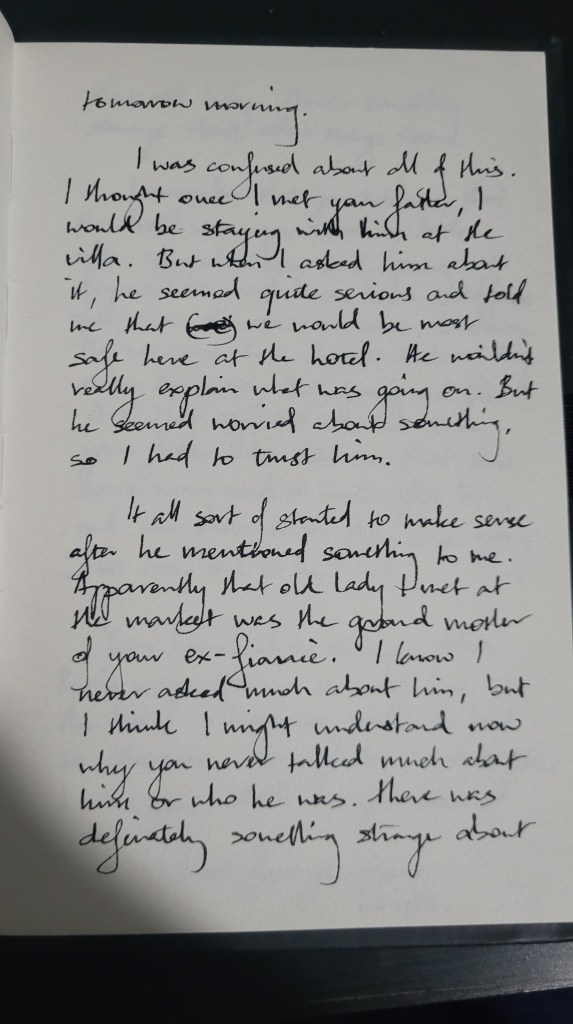 tomorrow morning.
I was confused about all of this.
I thought once I met your father, I
would be staying with him at the
villa. But when I asked him about
it, he seemed quite serious and told
me that we would be most
safe here at the hotel. He wouldn't
really explain what was going on. But
he seemed worried about something,
so I had to trust him.
It all sort of started to make sense
after he mentioned something to me.
Apparently that old lady I met at
the market was the grand mother
of your ex-fiancè. I know I
never asked much about him, but
I think I might understand now
why you never talked much about
him or who he was. There was
definately something strange about